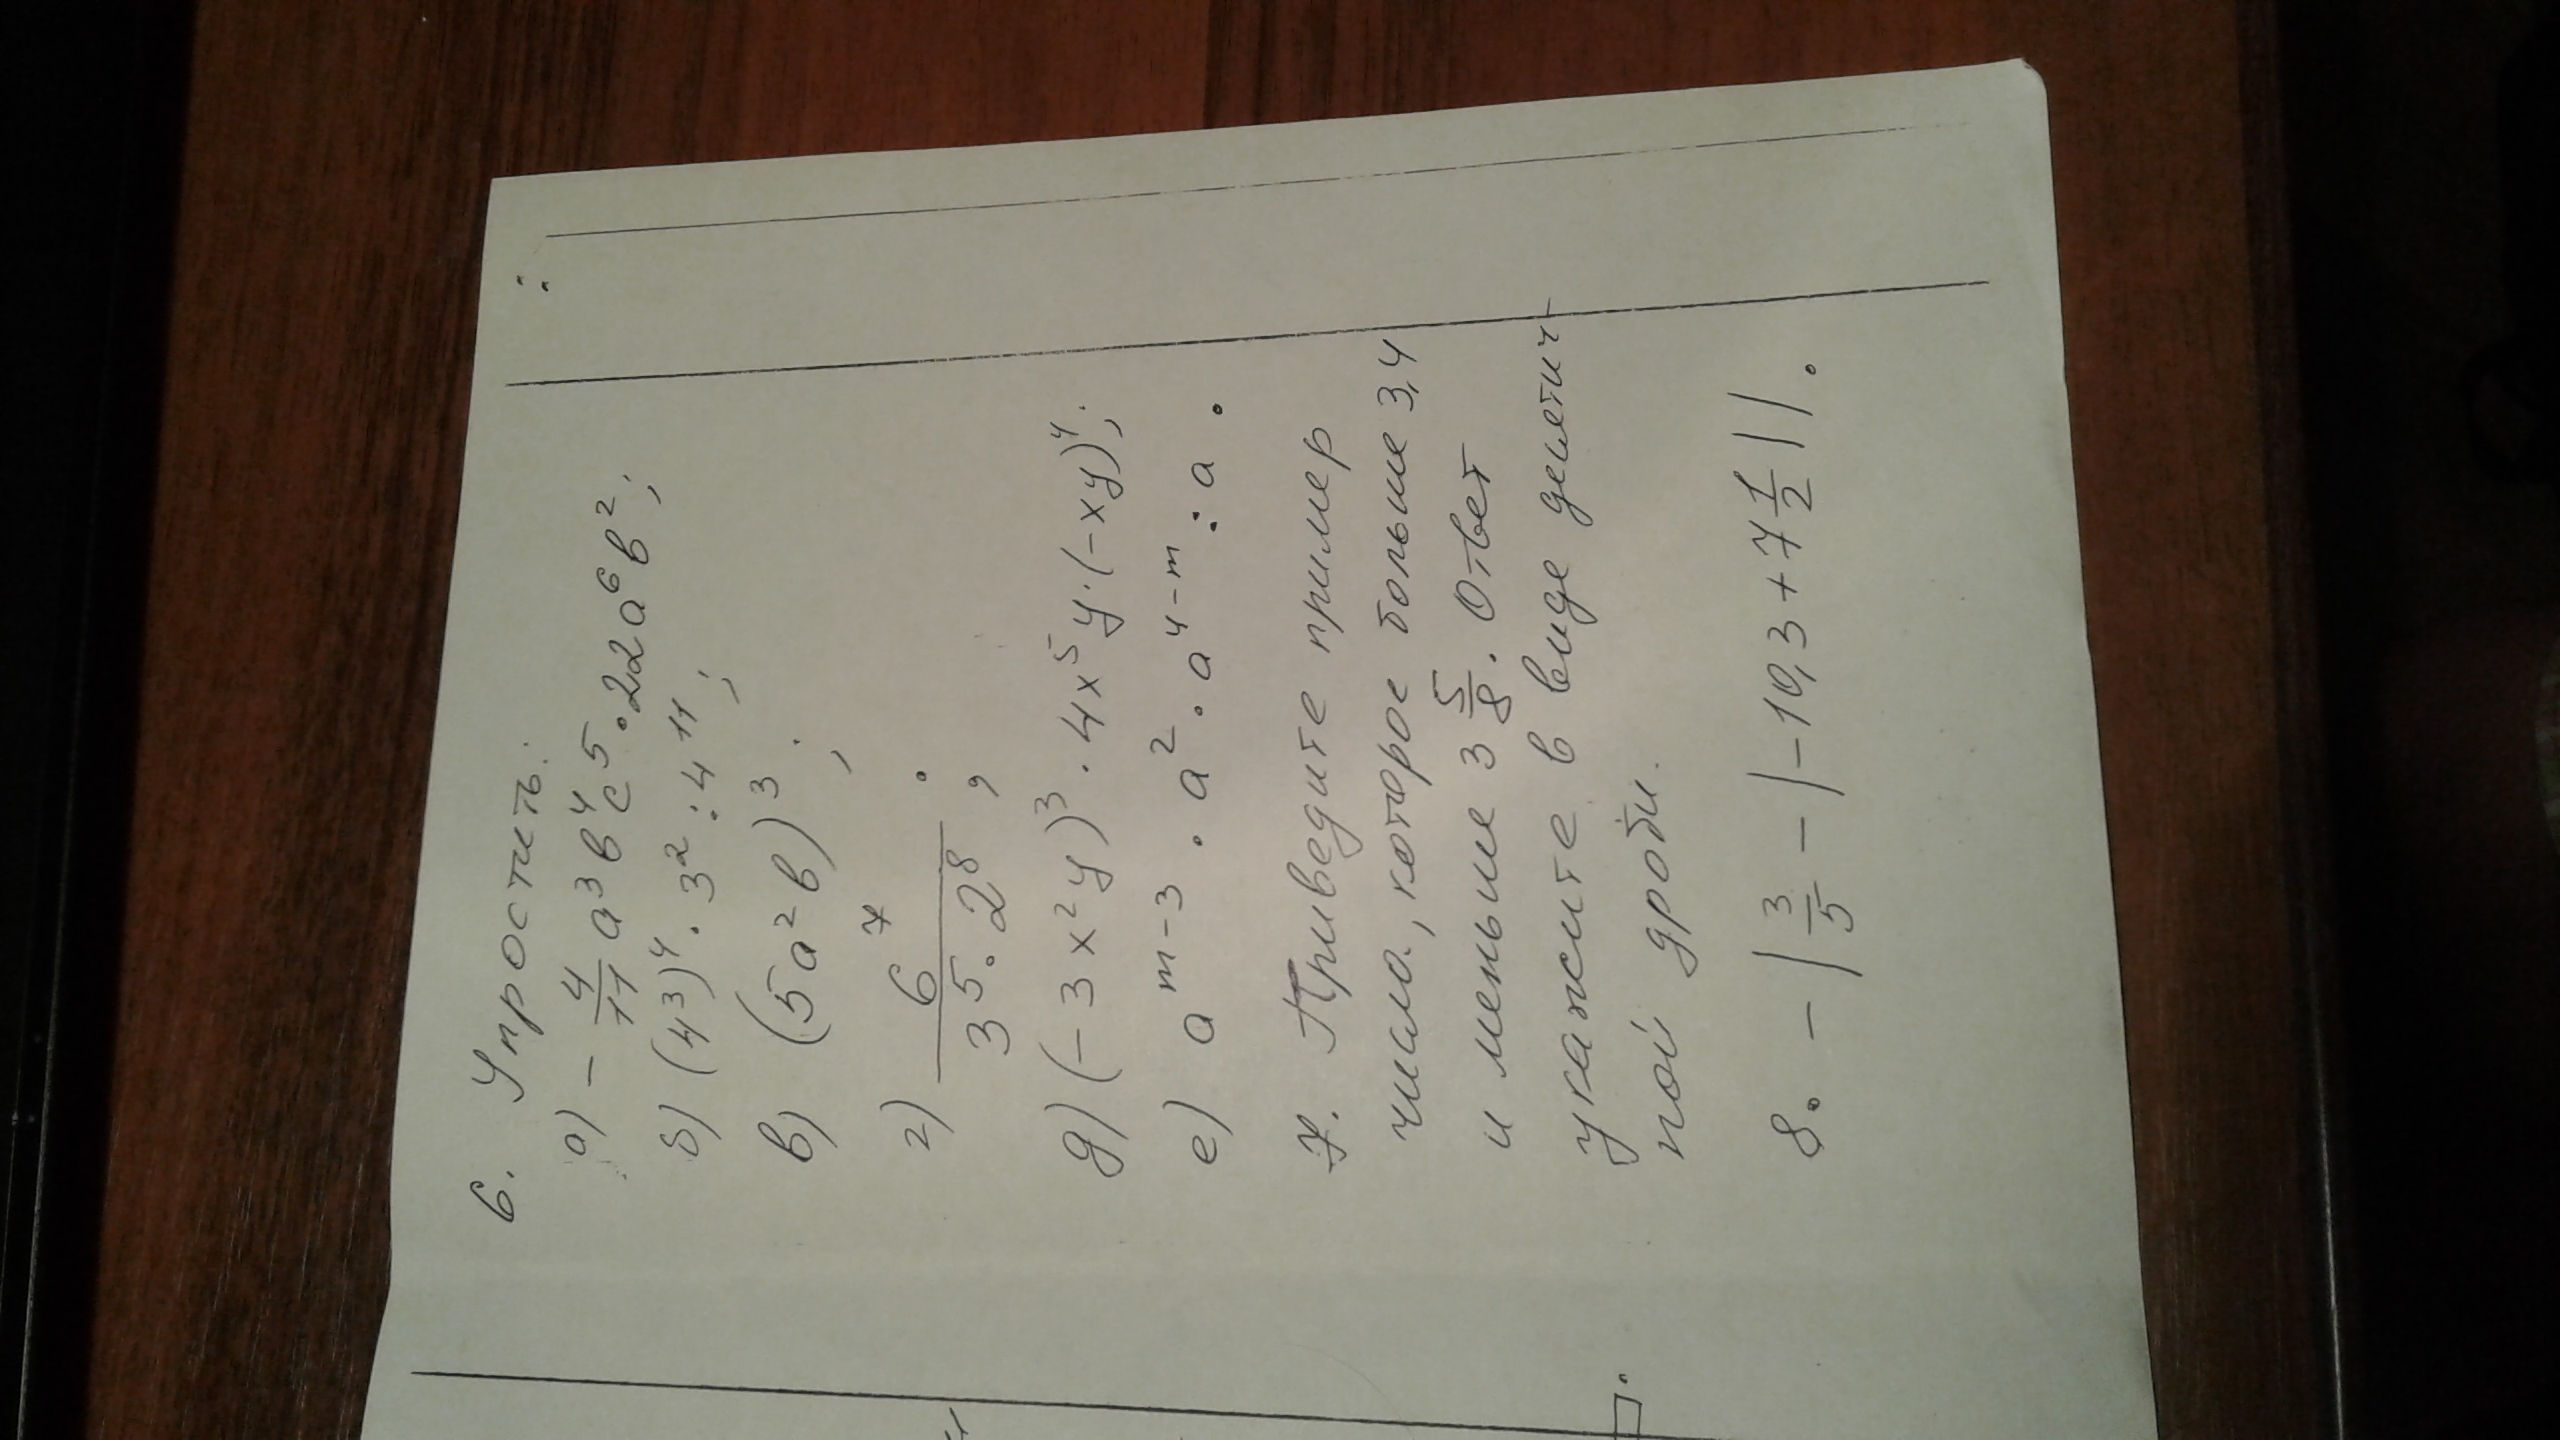 6. Упростить:
а) - 4/11 a³b⁴c⁵ · 22a⁶b²;
б) (4³)⁴ · 3² : 4¹¹;
в) (5a²b)³;
г) 6⁷ / 3⁵ · 2⁸;
д) (-3x²y)³ · 4x⁵y · (-xy)⁴;
е) a^(m-3) · a² · a^(4-m) : a.
7. Приведите пример
числа, которое больше 3,4
и меньше 3 5/8. Ответ
укажите в виде десятич-
ной дроби.
8. - | 3/5 - | -10,3 + 7 1/2 | |.